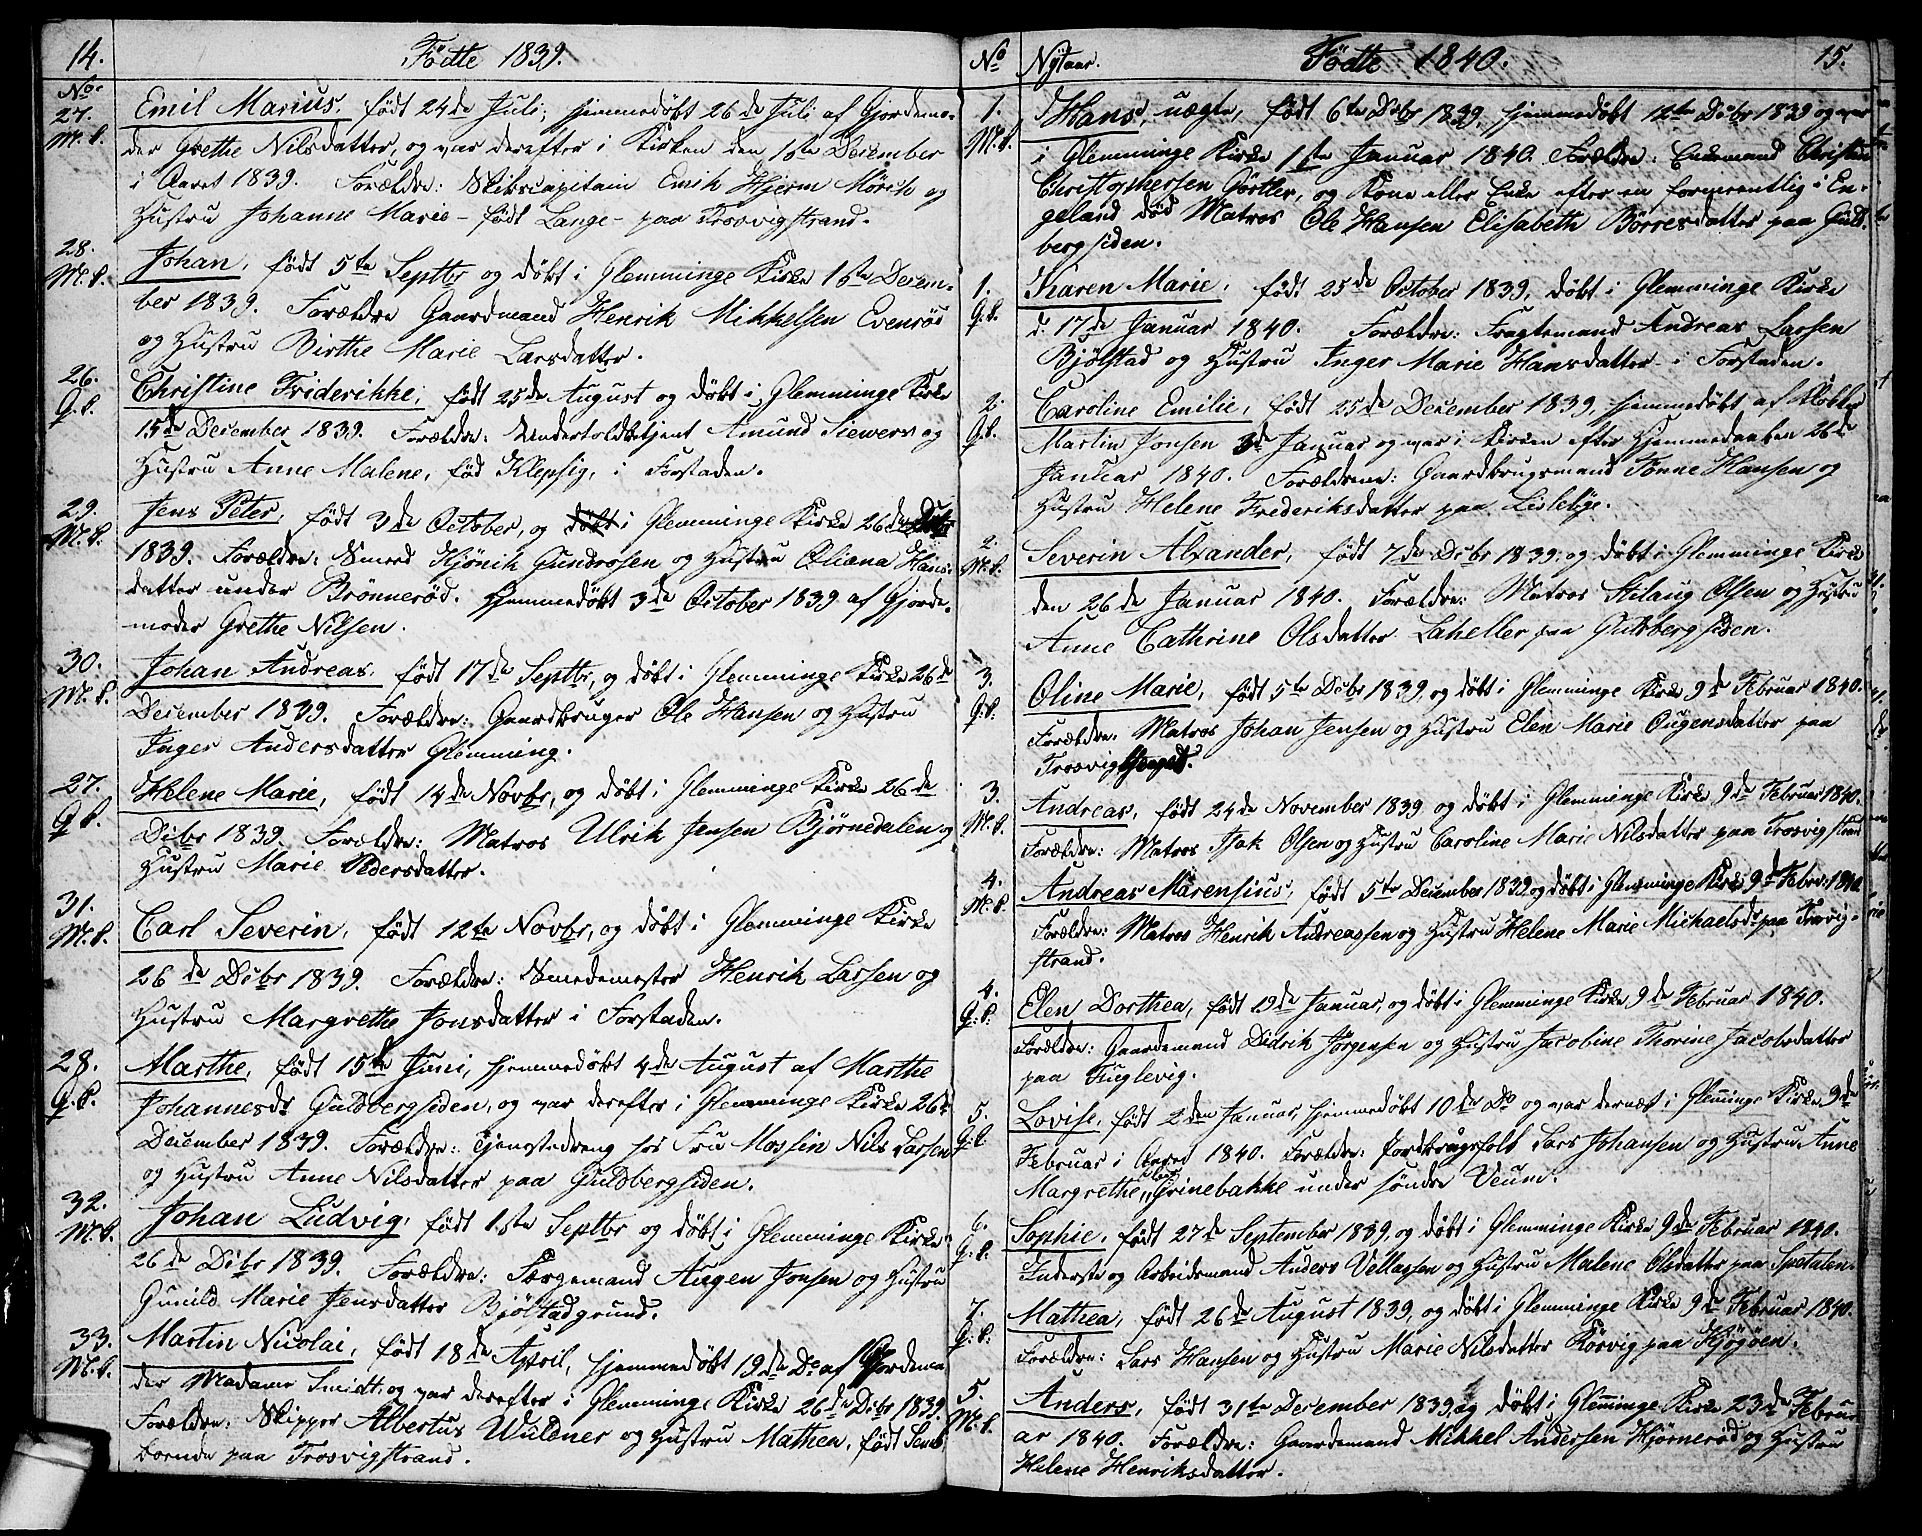 14. Födte 1839.
No.
27. Emil Marius, født 24de Juli, hjemmedøbt 26de Juli af Gjordemo-
M.K. der Grethe Nilsdatter, og var derefter i Kirken den 16te December
i Aaret 1839. Forældre: Skibscapitain Emih Hjerm Mörch og
Hustru Johanne Marie - født Lange - paa Trosvigstrand.
28. Johan, født 5te Septbr og døbt i Glemminge Kirke 16te Decem-
M.K. ber 1839. Forældre Gaardmand Henrik Mikkelsen Evenröd
og Hustru Birthe Marie Larsdatter.
26. Christine Friderikke, født 25de August og døbt i Glemminge Kirke
Q.K. 15de December 1839. Forældre: Undertoldbetjent Amund Siewers og
Hustru Anne Malene, fød Klepsig, i Forstaden.
29. Jens Peter, født 3de October, og døbt i Glemminge Kirke 26de Decbr
M.K. 1839. Forældre: Smeed Kjönik Gundrosen og Hustru Oliana Hans-
datter under Brönneröd. Hjemmedøbt 3de October 1839 af Gjorde-
moder Grethe Nilsen.
30. Johan Andreas, født 17de Septbr, og døbt i Glemminge Kirke 26de
M.K. December 1839. Forældre: Gaardbruger Ole Hansen og Hustru
Inger Andersdatter Glemming.
27. Helene Marie, født 14de Novbr, og døbt i Glemminge Kirke 26de
Q.K. Dcbr 1839. Forældre: Matros Ulrik Jensen Björnedalen og
Hustru Marie Pedersdatter.
31. Carl Severin, født 12te Novbr, og døbt i Glemminge Kirke
M.K. 26de Dcbr 1839. Forældre: Smedemester Henrik Larsen og
Hustru Margrethe Jonsdatter i Forstaden.
28. Marthe, født 15de Juni, hjemmedøbt 4de August af Marthe
Q.K. Johannesdr Guldbergsiden, og var derefter i Glemminge Kirke 26de
December 1839. Forældre: Tjenestedreng hos Fru Mossin Nils Larsen
og Hustru Anne Nilsdatter paa Guldbergsiden.
32. Johan Ludvig, født 1ste Septbr og døbt i Glemminge Kirke
M.K. 26de Dcbr 1839. Forældre: Færgemand Augen Jonsen og Hustru
Gunild Marie Jensdatter Bjölstadgrund.
33. Martin Nicolai, født 18de April, hjemmedøbt 19de Do af Gjordemo
M.K. der Madame Smidt, og var derefter i Glemminge Kirke 26de Dcbr 1839.
Forældre: Skipper Albertus Wuldner og Hustru Mathea, født
paa Trosvigstrand.
No Nytaar. Födte 1840. 15.
1. Hans, uægte, født 6te Dcbr 1839, hjemmedøbt 12te Dcbr 1839 og var
M.K. i Glemminge Kirke 1ste Januar 1840. Forældre: Enkemand Christian
Christophersen Görtler, og Kone eller Enke efter en formeentlig i En-
geland död Matros Ole Hansen Elisabeth Börresdatter paa Guld-
bergsiden.
1. Karen Marie, født 25de October 1839, døbt i Glemminge Kirke
Q.K. d. 17de Januar 1840. Forældre: Fragtemand Andreas Larsen
Bjölstad og Hustru Inger Marie Hansdatter i Forstaden.
2. Caroline Emilie, født 25de December 1839, hjemmedøbt af Klokker
Q.K. Martin Jonsen 3de Januar og var i Kirken efter Hjemmedaaben 26de
Januar 1840. Forældrene: Gaardbrugsmand Tönne Hansen og
Hustru Helene Frederiksdatter paa Lislebye.
2. Severin Alxander, født 7de Dcbr 1839, og døbt i Glemminge Kirke
M.K. den 26de Januar 1840. Forældre: Matros Aslaug Olsen og Hustru
Anne Cathrine Olsdatter Laheller paa Guldbergsiden.
3. Oline Marie, født 5te Dcbr 1839, og døbt i Glemminge Kirke 9de Februar 1840.
Q.K. Forældre: Matros Johan Jensen og Hustru Elen Marie Ougensdatter paa
Trosvig
3. Andreas, født 24de November 1839 og døbt i Glemminge Kirke 9de Februar 1840.
M.K. Forældre: Matros Isak Olsen og Hustru Caroline Marie Nilsdatter paa Trosvigstrand
4. Andreas Marensius, født 5te December 1839 og døbt i Glemminge Kirke 9de Febr. 1840.
M.K. Forældre: Matros Henrik Andreassen og Hustru Helene Marie Michaelsdr paa Trosvig-
strand.
4. Elen Dorthea, født 19de Januar, og døbt i Glemminge Kirke 9de Februar 1840.
Q.K. Forældre: Gaardemand Didrik Jørgensen og Hustru Jacobine Thorine Jacobsdatter
paa Fuglevig.
5. Lovise, født 2den Januar, hjemmedøbt 10de Do og var dernæst i Glemminge Kirke 9de
Q.K. Februar i Aaret 1840. Forældre: Jordbrugsfolk Lars Johansen og Hustru Anne
Margrethe Grinebakke under søndre Veum.
6. Sophie, født 27de September 1839, og døbt i Glemminge Kirke 9de Februar 1840.
Q.K. Inderste og Arbeidsmand Anders Vellassen og Hustru Malene Olsdatter paa Spetalen.
7. Mathea, født 26de August 1839, og døbt i Glemminge Kirke 9de Februar 1840.
Q.K. Forældre: Lars Hansen og Hustru Marie Nilsdatter Körvig paa Kjögöen.
5. Anders, født 31te December 1839, og døbt i Glemminge Kirke 23de Febru-
M.K. ar 1840. Forældre: Gaardemand Mikkel Andersen Hjörneröd og Hustru
Helene Henriksdatter.